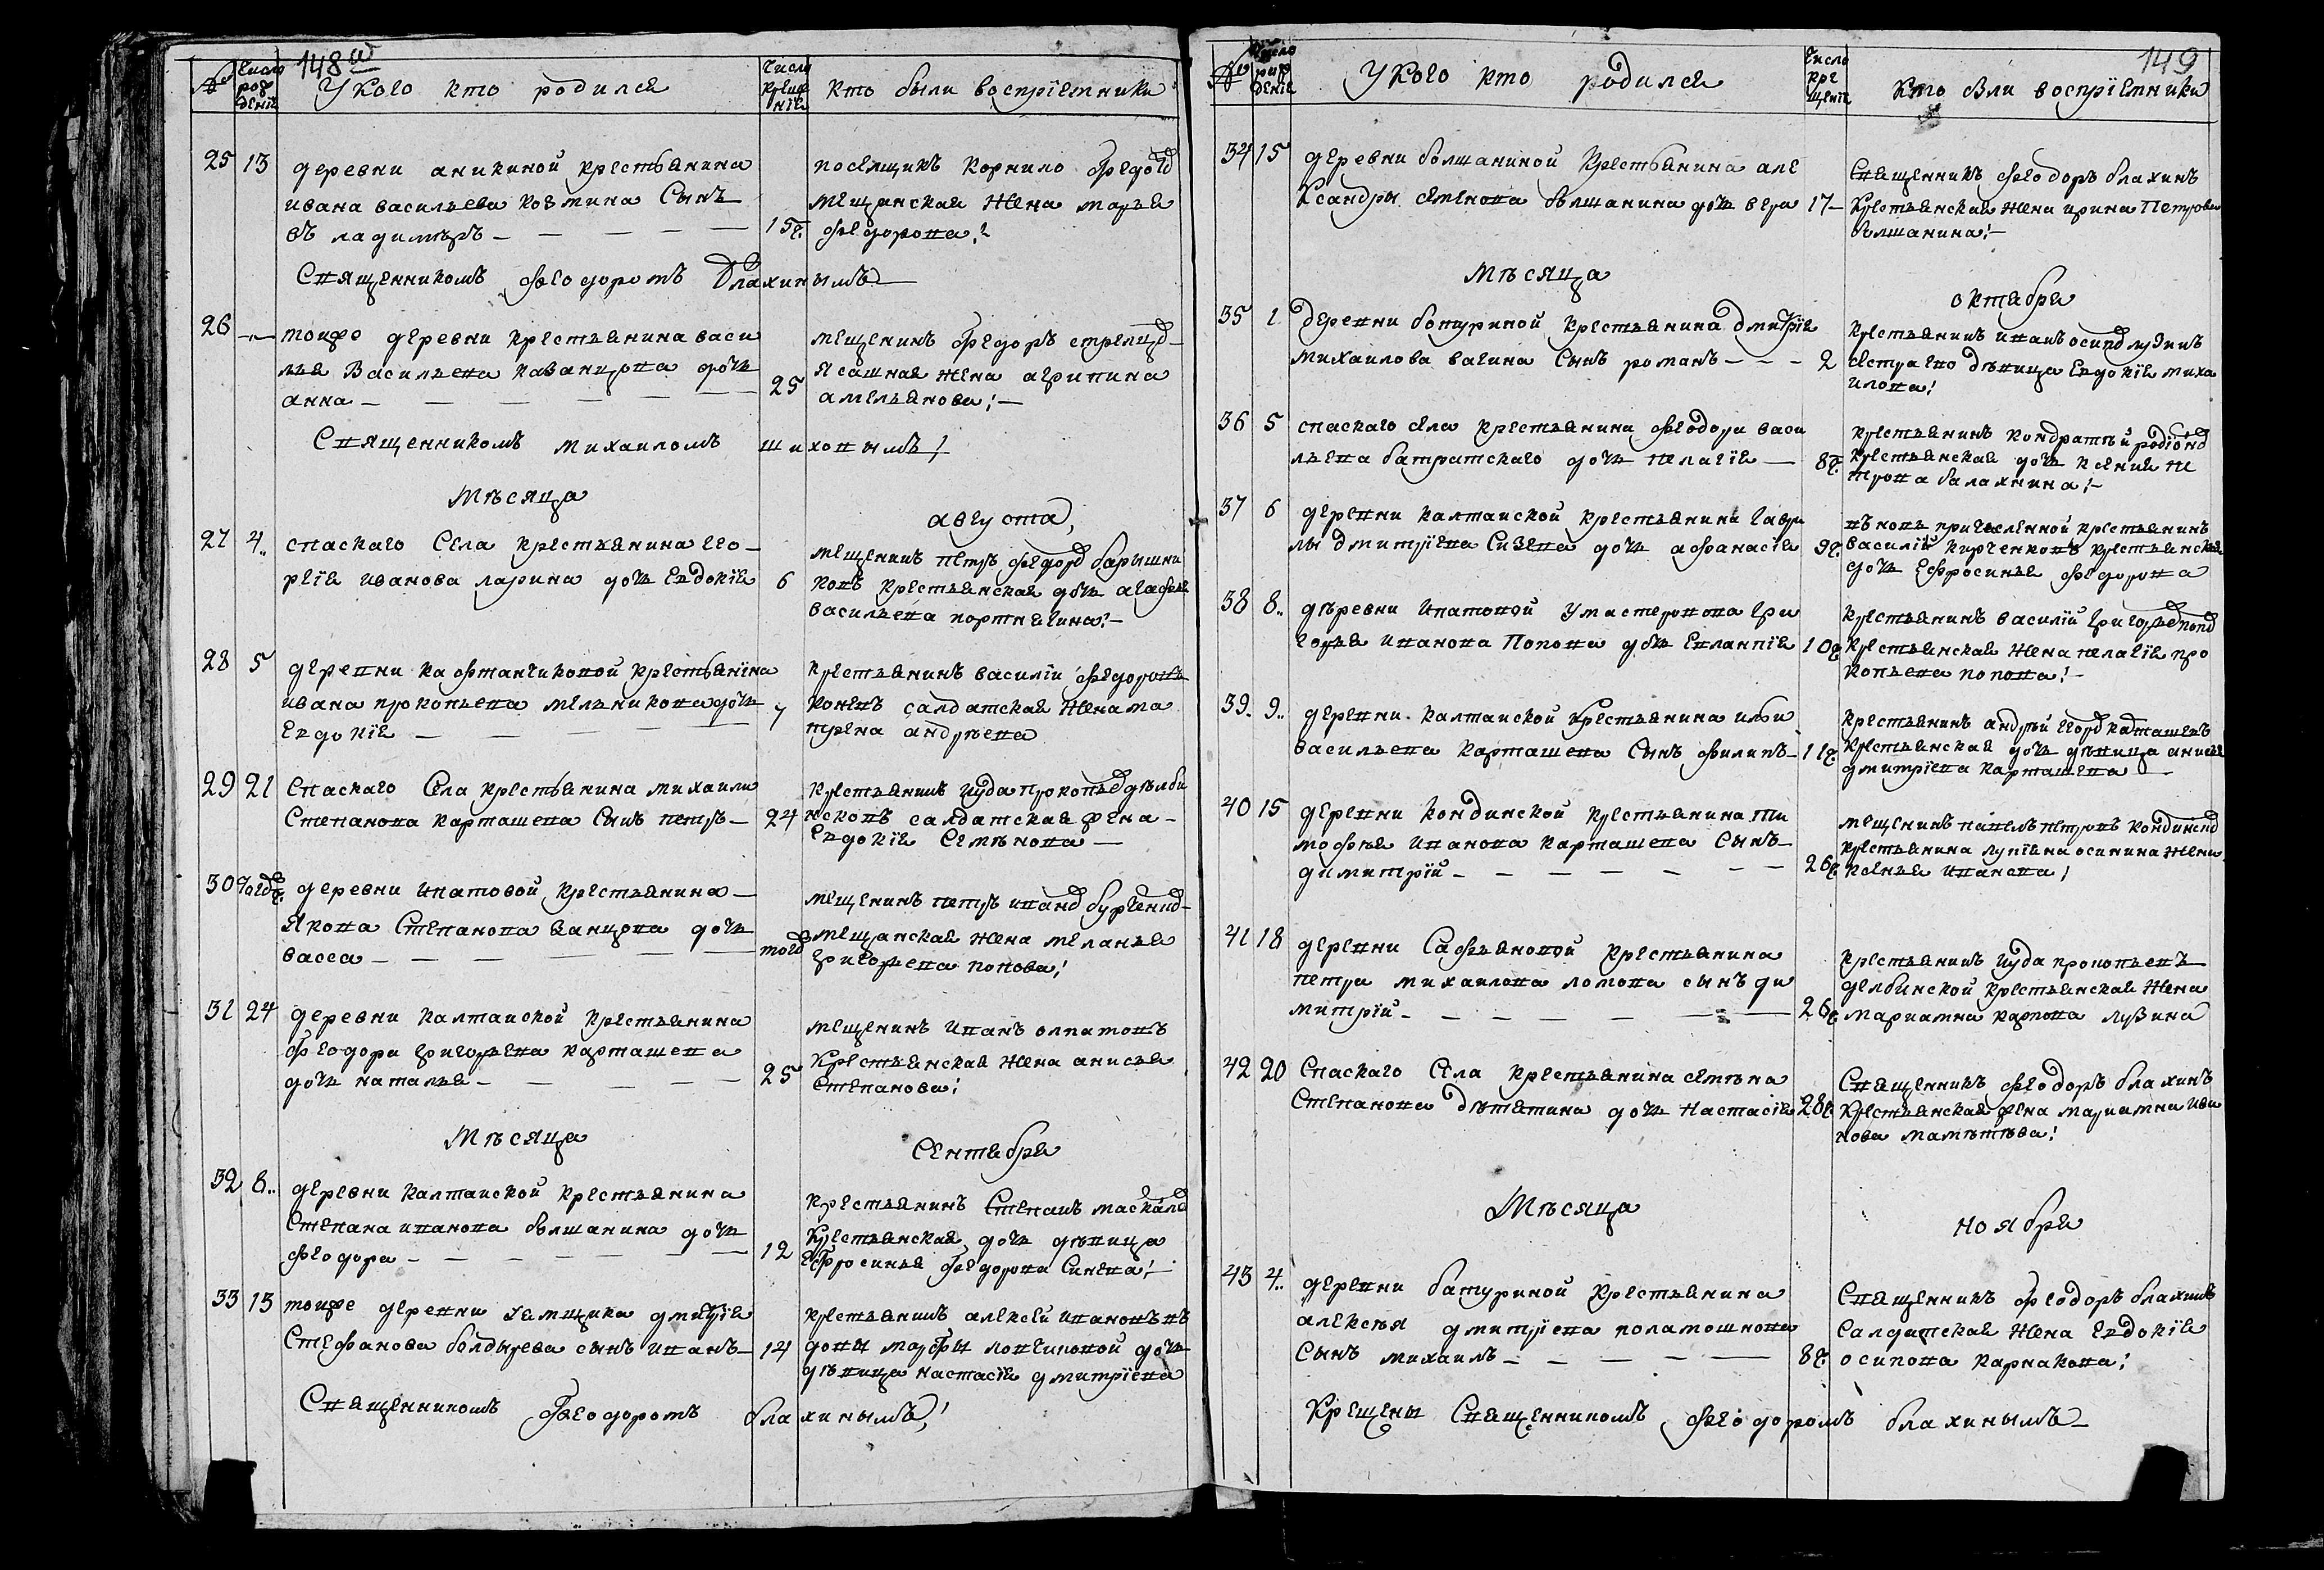 148
№ Число рождения У кого кто родился Число крещения кто были восприемники
25 13 деревни аникиной крестьянина
ивана васильева козмина Сынъ
владимиръ 15
посящикъ корнило Федо
мещанская жена марья
федорова
Священникомъ Феодоромъ Блахинымъ
26 тоиже деревни крестьянина васи
лья Васильева казанцова дочь
анна 25
мещенинъ Федоръ стрелц
ясашная жена агрипина
амельянова
Священникомъ михаиломъ шиховымъ
Мѣсяца августа
27 4 спаскаго Села крестьянина его
ргiя иванова ларина дочь Евдокiя 6
мещенинъ петръ федор барышни
ковъ крестьянская дочь агафья
васильева портнягина
28 5 деревни кафтанчиковой крестьянина
ивана прокопьева мельникова дочь
Евдокiя 7
крестьянинъ василiй федоровъ
коневъ салдатская жена ма
трена андрѣева
29 21 Спаскаго Села крестьянина михаила
Степанова карташева Сынъ петръ 24
крестьянинъ Иуда прокопье дѣлби
нсковъ салдатская жена
Евдокiя Семѣнова
30 деревни ипатовой крестьянина
Якова Степанова Канцова дочь
васса
мещенинъ петръ иван
мещанская жена меланья
григорьева попова
31 24 деревни калтаиской крестьянина
Феодора григорьева карташева
дочь наталья 25
мещенинъ Иванъ олпатовъ
крестьянская жена анисья
Степанова
Мѣсяца Сентября
32 8 деревни калтаиской крестьянина
Степана иванова болшанина дочь
феодора 12
крестьянинъ Степанъ маскал
крестьянская дочь дѣвица
Ефросинья Федорова Синева
33 13 тоиже деревни ямщика дмитрiя
Стефанова болдырева сынъ иванъ 14
крестьянинъ алексеи ивановъ в
довы марфы логиновой дочь
дѣвица настасiя дмитрiева
Священникомъ Феодоромъ блахинымъ
149
№ Число рождения У кого кто родился Число крещения кто были восприемники
34 15 деревни болшаниной крестьянина але
ксандры семенова болшанина дочь вера 17
Священникъ феодоръ блахинъ
крестьянская жена ирина Петрова
болшанина
Мѣсяца октября
35 1 деревни батуриной крестьянина дмитрiя
михаилова вагина Сынъ романъ 2
крестьянинъ иванъ осип лузинъ
сестра его дѣвица Евдокiя миха
илова
36 5 спаскаго села крестьянина феодора васи
льева батратскаго дочь пелагiя 8
крестьянинъ кондратѣй родiон
крестьянская дочь ксения пе
трова балахнина
37 6 деревни калтаиской крестьянина гаври
лы дмитрiева Сизева дочь афанасiя 9
вновь причисленной крестьянинъ
василiй кирченковъ крестьянская
дочь Ефросинья федорова
38 8 дѣревни ипатовой У мастероваго гри
горья иванова Попова дочь Евлампiя 10
крестьянинъ василiй григорье попо
крестьянская жена пелагiя про
копьева попова
39 9 деревни калтаиской крестьянина ильи
васильева карташева Сынъ филипъ 11
крестьянинъ андрѣй егор карташевъ
крестьянская дочь дѣвица анисья
дмитрiева карташева
40 15 деревни кондинской крестьянина ти
мофѣя иванова карташева Сынъ
димитрiй 26
мещенинъ павелъ петровъ кондинс
крестьянина лупiяна осинина жена
ксенья иванова
41 18 деревни Сафьяновой крестьянина
петра михаилова ломова сынъ ди
митрiй 26
крестьянинъ Иуда прокопьевъ
делбинской крестьянская жена
мариамна карпова лузина
42 20 Спаскаго Села крестьянина семѣна
Степанова дѣтятина дочь Настасiя 28
Священникъ феодоръ блахинъ
крестьянская жена мариамна ива
нова маматѣва
Мѣсяца ноября
43 4 деревни батуриной крестьянина
алексѣя дмитрiева поламошнова
Сынъ михаилъ 8
Священникъ феодоръ блахинъ
Салдатская жена Евдокiя
осипова карнакова
Крещены Священникомъ феодоромъ блахинымъ